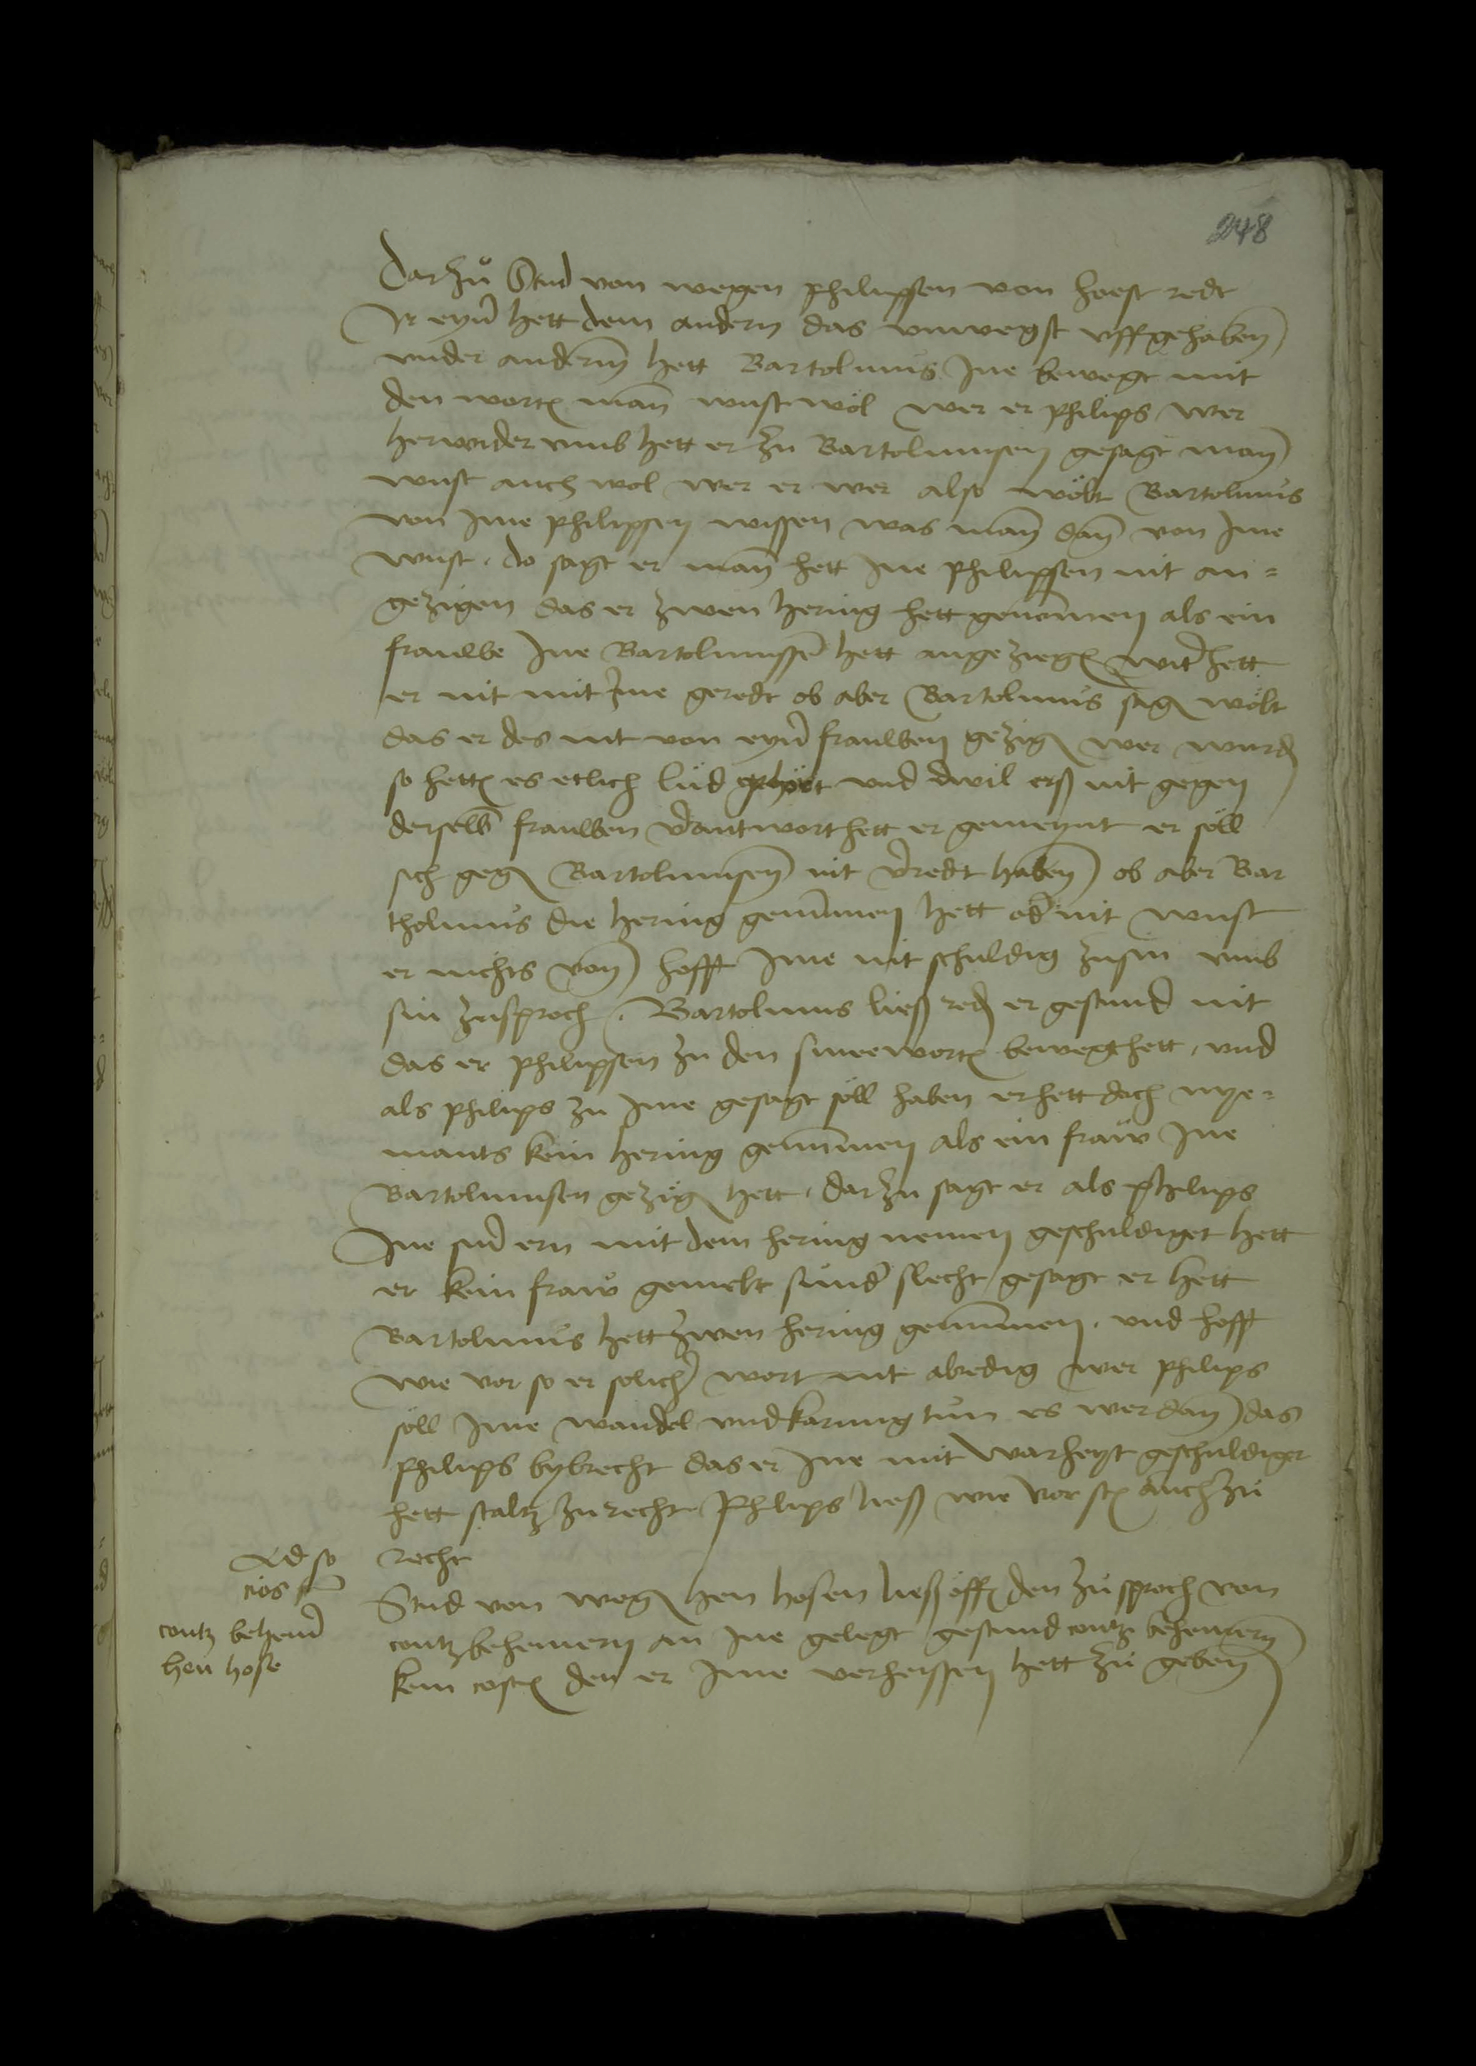 248
Darzu Stud von wegen philipsen von hoest redt
Ir eyn̄ hett dem andern das vnwegst vffgehaben
vnder anderm hett Bartolmus Ine bewegt mit
den wortē man wust wol wer er philips wer
herwider vmb hett er zu Bartolmusen gesagt man
wust auch wol wer er wer also wolt Bartolmus
von Ime philipsen wissen was man dan von Ime
wust. do sagt er man hett Ine philipsen nit an=
gezigen das er zwen hering hett genomen als ein
frauwe Ine Bartolmussē hett angeziegē wit̄ hett
er nit mit Ime geredt ob aber Bartolmus sagē wolt
das er des nit von eyn̄ frauwen gezigē wer wurdē
so hettē es etlich lud gehort vnd dwil erß nit gegen
derselb̄ frauwen v̄antwort hett er gemeynt er soll
sich gegē Bartolmusen nit v̄redt haben ob aber Bar
tholmus die hering genūmen hett od̄ nit wust
er nichts von hofft Ime nit schuldig zusin vmb
sin zusproch. Bartolmus ließ redē er gestund nit
das er philipsen zu den smeewortē bewegt hett. vnd
als philips zu Ime gesagt soll haben er hett doch nye=
mants kein hering genūmen als ein frauw Ine
Bartolmusen gezigē hett. darzu sagt er als philips
Ine sin̄ ern mit dem hering nemen geschuldiget hett
er kein frauw gemelt sund̄ slecht gesagt er hett
Bartolmus hett zwen hering genūmen. vnd hofft
wie vor so er solich̄ wort nit abredig wer philips
soll Ime wandel vnd karung tun es wer dan das
philips bybrecht das er Ine mit warheyt geschuldiget
hett staltz zurecht philips ließ wie vor stē auch zu
recht
Stud von wegē hen hosen ließ offē den zusproch von
contz behemern an Ine gelegt gestund contz behemern
kein costē den er Ime verheissen hett zu geben
Ad so
cios
contz behem̄
hen hose